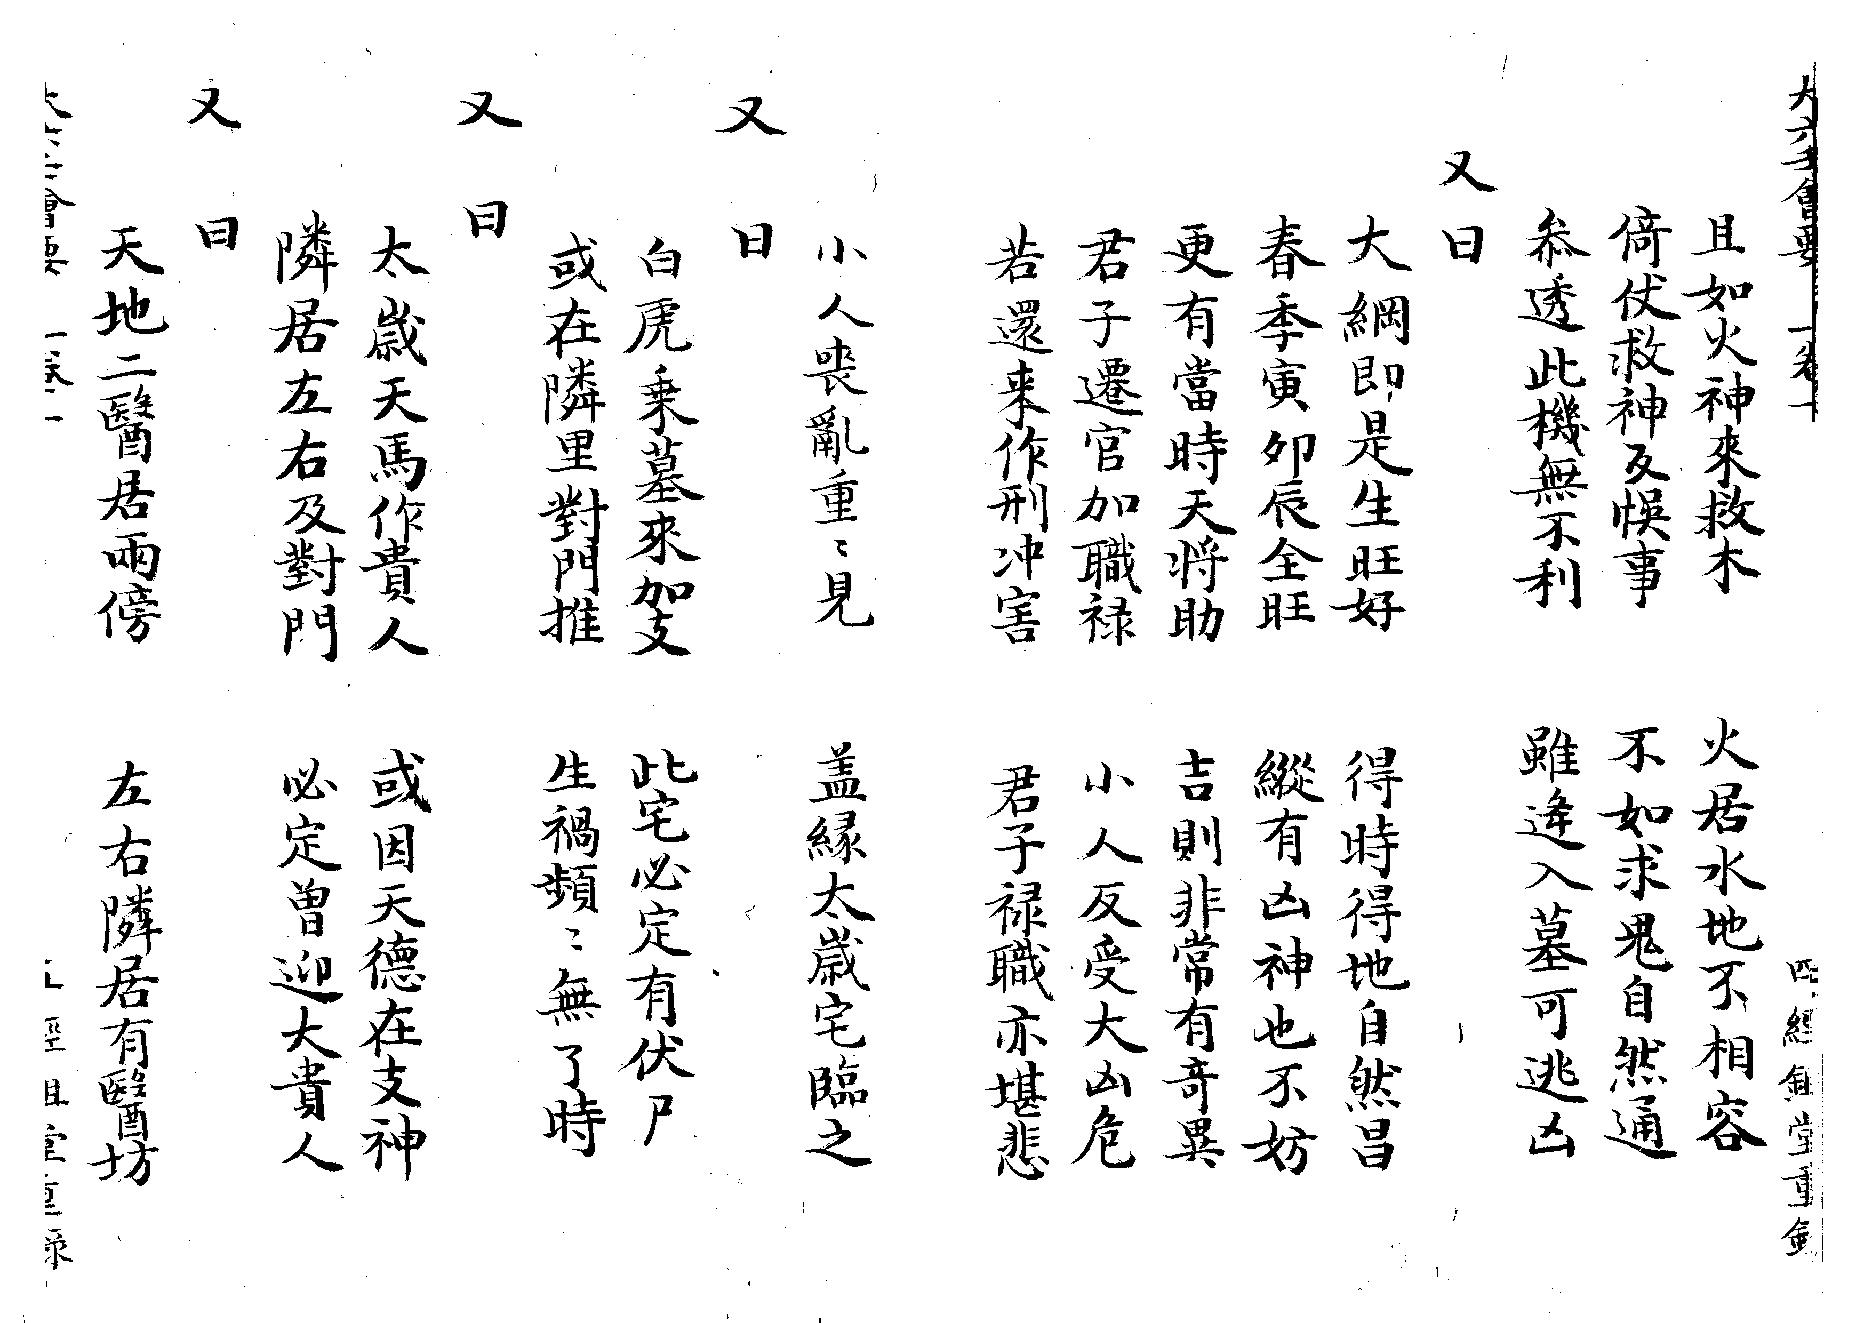 大六壬會要 一卷一 四 經鉏堂重錄
且如火神來救木 火居水地不相容
倚仗救神反悞事 不如求鬼自然通
叅透此機無不利 雖逄入墓可逃凶
又曰
大綱即是生旺好 得時得地自然昌
春季寅卯辰全旺 縱有凶神也不妨
更有當時天将助 吉則非常有奇異
君子遷官加職禄 小人反受大凶危
若還来作刑冲害 君子禄職亦堪悲
小人喪亂重〻見 盖緣太歲宅臨之
又曰
白虎乘墓來加支 此宅必定有伏尸
或在隣里對門推 生禍頻〻無了時
又曰
太歲天馬作貴人 或因天德在支神
隣居左右及對門 必定曾迎大貴人
又曰
天地二醫居兩傍 左右隣居有醫坊
大六壬會要 一卷一